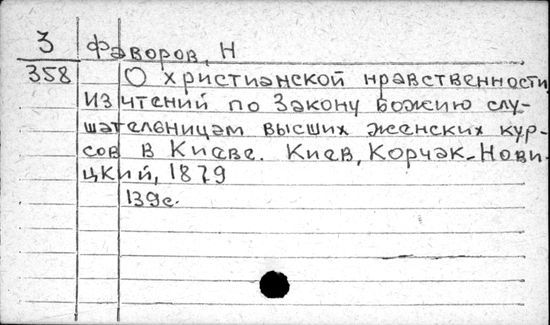 3 Фаворов, Н
358 О христианской нравственности
Из чтений по Закону Божию слу-
шательницам высших женских кур-
сов в Киеве. Киев, Корчак-Нови-
цкий, 1879
139с.